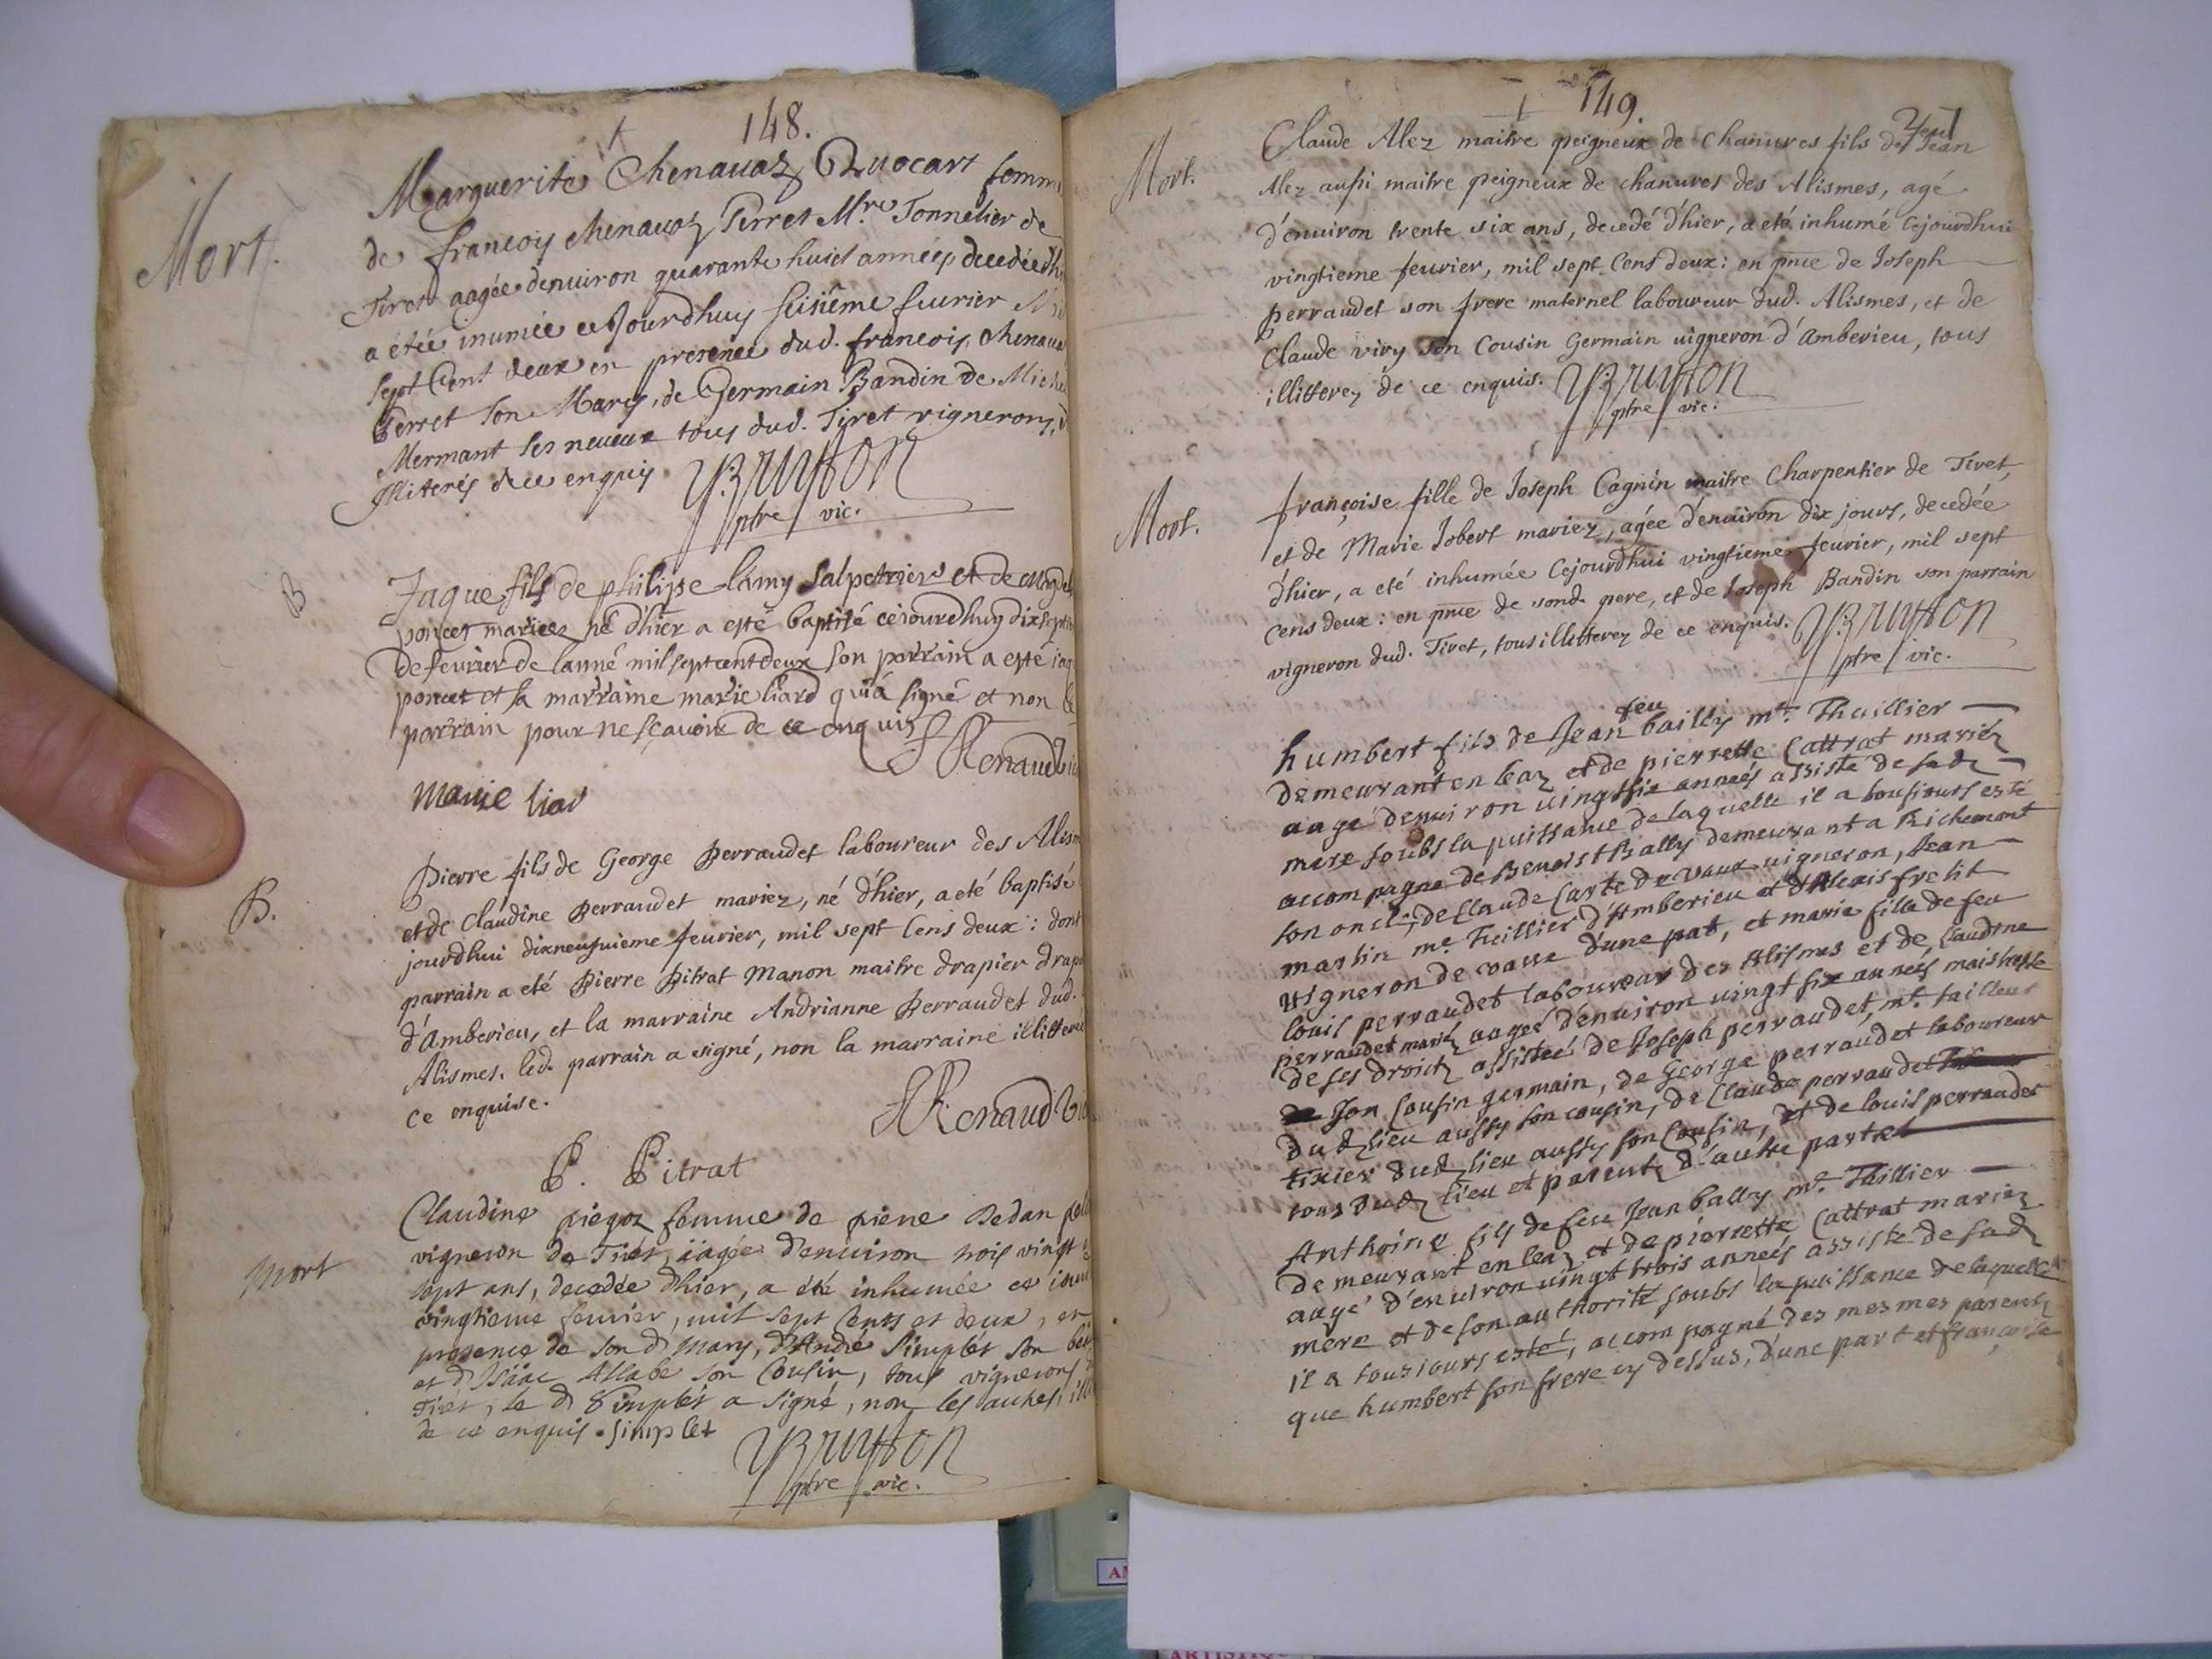 148.
Mort.
Marguerite Chenavaz Quocart femme
de francois chenavaz Perret Mre Tonnelier de
Tiret aagée denuiron quarante huict années decedée dhier
a étée inumée ce Jourdhuy seisiême feurier Mil
sept Cent deux en presence dud. francois, chenauaz
Perret son Mary, de Germain Bandin de Michel
Mermant ses neueux tous dud. Tiret vignerons,
Illiterés de ce enquis YBruyson
ptre vic.
B
Jaque fils de philipe lamy salpetrier et de
poncet mariez né d'hier a esté baptisé ce iourdhuy dixsept
de fevrier de lanné mil sept cent deux son parrain a esté iaq
poncet et sa marraine marie liard qui a signé et non le
parrain pour ne scavoir de ce enquis
JRenaud vic
marie liar
B.
Pierre fils de George Perraudet laboureur des Alism
et de Claudine Perraudet mariez, né d'hier, a eté baptisé
jourdhui dixneufuieme feurier, mil sept Cens deux: dont
parrain a eté Pierre Pitrat Manon maitre drapier drapa
d'Amberieu, et la marraine Andrianne Perraudet dud.
Alismes. led. parrain a signé, non la marraine illitteré
ce enquise.
JRenaud Vic
P. Pitrat
Mort
Claudine piegoz femme de piere Bedan
vigneron de Tiret aagée d'enuiron trois vingt
sept ans, decedée dhier, a été inhumée ce iour
vingtieme feurier, mil sept Cents et deux, en
presence de son d mary, d'André Simplet son beau
et d'Isaac Allabe son Cousin, tous vignerons
Tiret, le d Simplet a signé, non les autres, ill
de ce enquis. Simplet
YBruyson
ptre vic.
149.
Mort.
Claude Alez maitre peigneux de chanvres fils de feu Jean
Alez aussi maitre peigneux de chanures des Alismes, agé
d'enuiron trente six ans, decedé d'hier, a eté inhumé Cejourdhui
vingtieme feurier, mil sept Cens deux: en pnce de Joseph
perraudet son frere maternel laboureur dud. Alismes, et de
Claude viry son Cousin Germain uigneron d'Amberieu, tous
illitterez de ce enquis. YBruyson
ptre vic.
Mort.
françoise fille de Joseph Cagnin maitre Charpentier de Tiret,
et de Marie Jobert mariez, agée d'enuiron dix jours, decedée
d'hier, a eté inhumée Cejourdhui vingtieme feurier, mil sept
Cens deux: en pnce de sond. pere, et de Joseph Bandin son parrain
vigneron dud. Tiret, tous illitterez de ce enquis. YBruyson
ptre vic.
feu
humbert fils de Jean bailly mr. Thuillier
demeurant en leaz et de pierrette Cattrat mariéz
aagé denuiron uingtsix années assisté de sad
mere soubs la puissance de laquelle il a tousiours esté
accompagné de Benoist Bally demeurant a Richemont
son oncle, de Claude Carte de vaux uigneron, Jean
martin me. Tuillier d'Amberieu et d'Alexis frelit
vigneron de vaux d'une pat, et marie fille de feu
louis perraudet laboureur des Alismes et de Claudine
perraudet mariéz aagée denuiron uingt six années maistresse
de ses droicts assistée de Joseph perraudet, mr. tailleur
son Cousin germain, de George perraudet laboureur
dud lieu aussy son cousin, de Claude perraudet
tixier dud lieu aussy son Cousin, et de louis perraudet
tous dud lieu et parents d'autre part
Anthoine fils de feu Jean bally mr. Thillier
demeurant en leaz et de pierrette Cattrat mariez
aagé d'enuiron uingt trois années assisté de sad
mere et de son authorité soubs la puissance de laquelle
il a tousiours esté, accompagné des mesmes parents
que humbert son frere cy dessus, d'une part et françoise